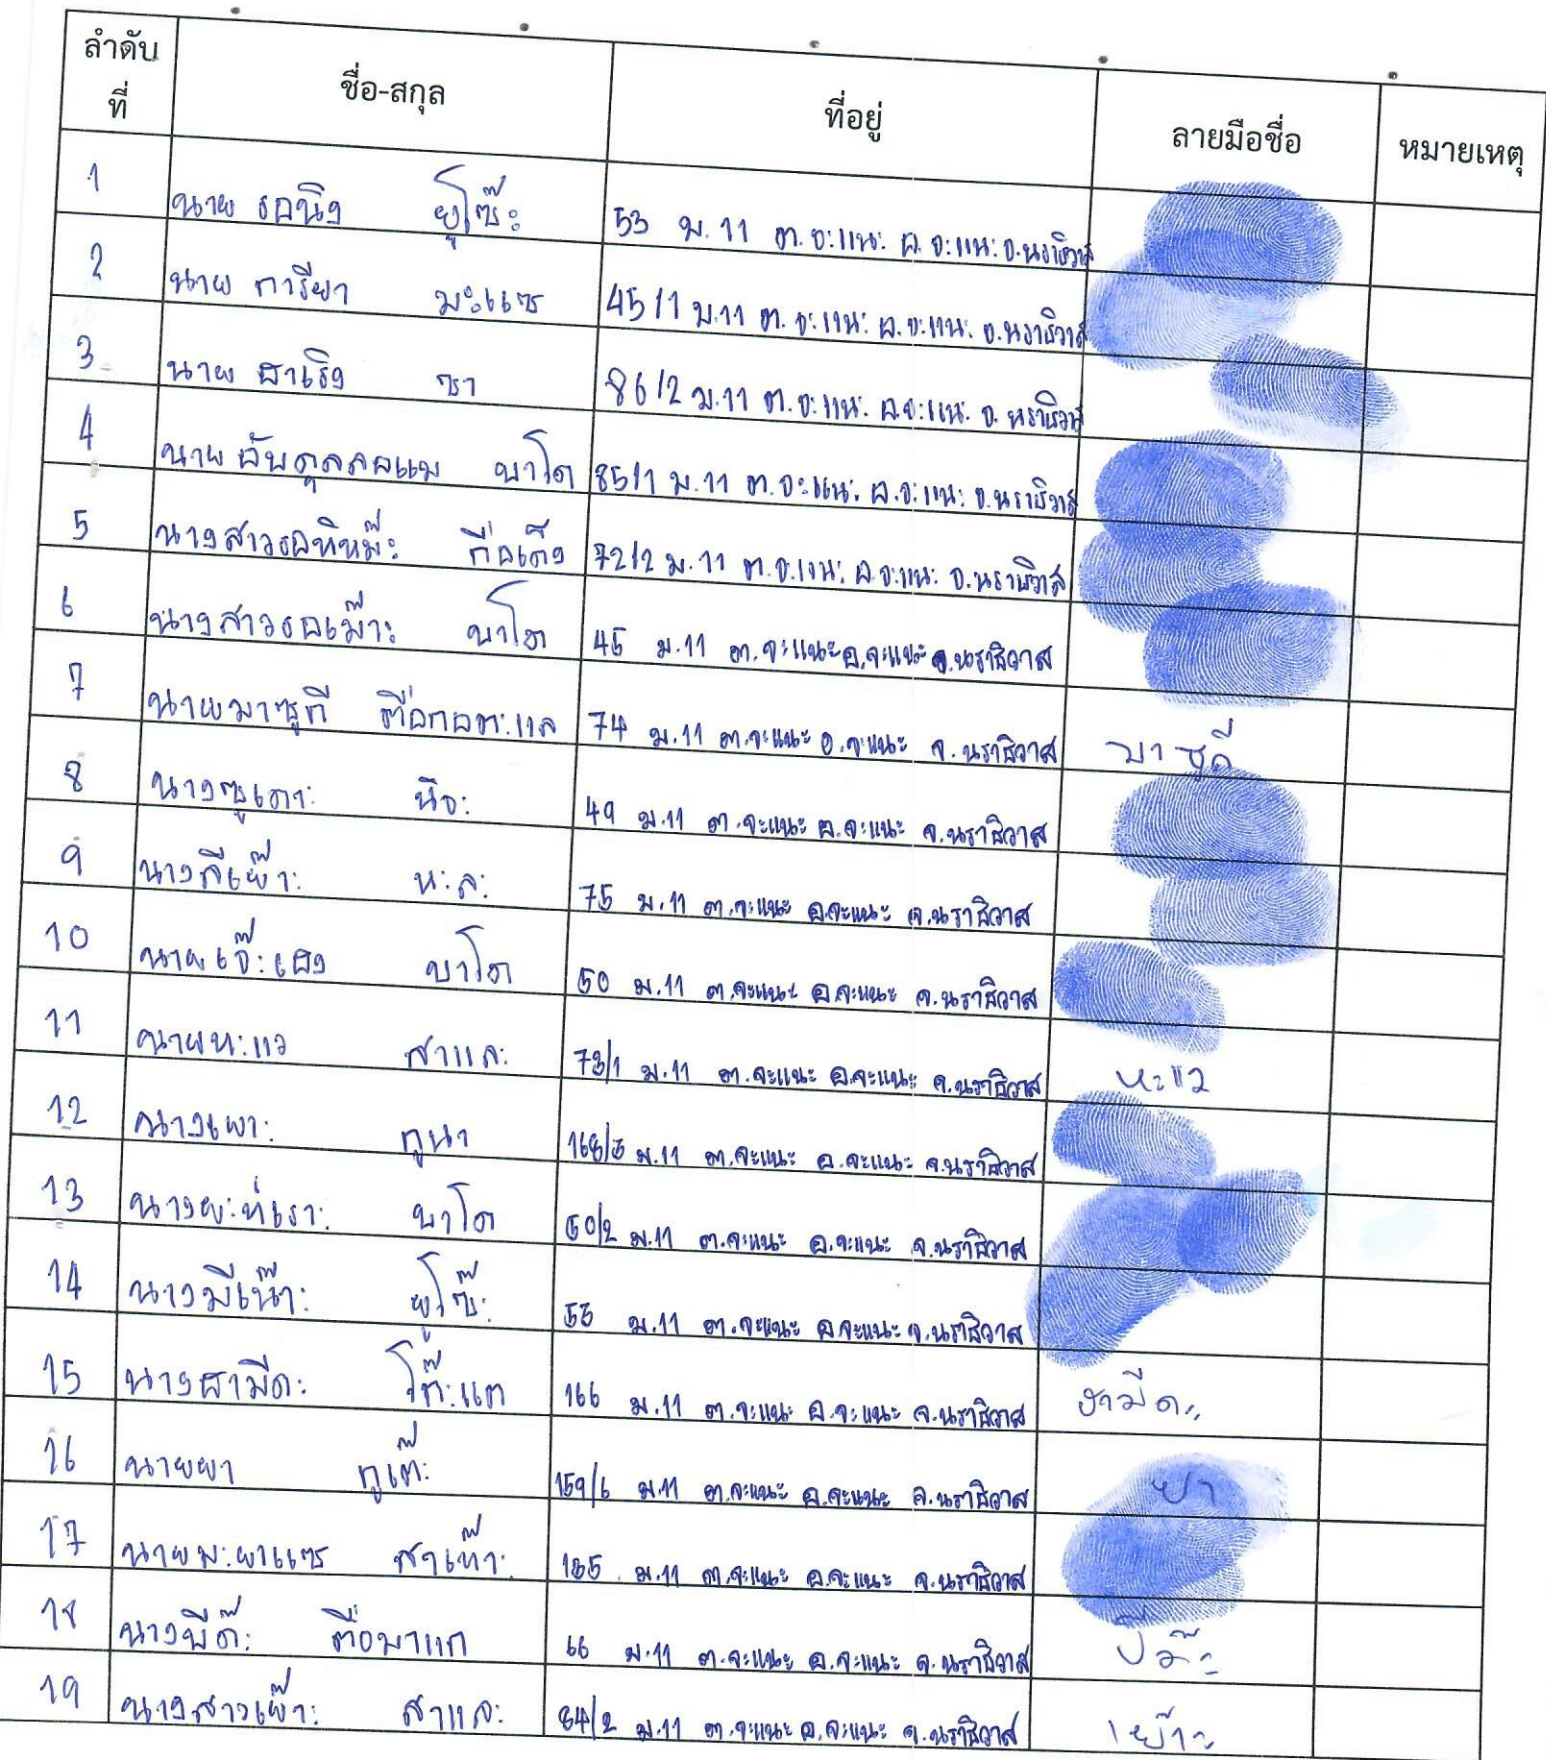 ลำดับที่ ชื่อ-สกุล ที่อยู่ ลายมือชื่อ หมายเหตุ
1 นาย รอนิง ยูโซ๊ะ 53 ม.11 ต.จะแนะ อ.จะแนะ จ.นราธิวาส
2 นาย การียา มะแซ 45/1 ม.11 ต.จะแนะ อ.จะแนะ จ.นราธิวาส
3 นาย สาเร็ง ซา 86/2 ม.11 ต.จะแนะ อ.จะแนะ จ.นราธิวาส
4 นาย อับดุลลอแม บาโด 85/1 ม.11 ต.จะแนะ อ.จะแนะ จ.นราธิวาส
5 นางสาวรอหิหม๊ะ กือเด็ง 72/2 ม.11 ต.จะแนะ อ.จะแนะ จ.นราธิวาส
6 นางสาวรอเม๊าะ บาโด 45 ม.11 ต.จะแนะ อ.จะแนะ จ.นราธิวาส
7 นายมาซูกี 74 ม.11 ต.จะแนะ อ.จะแนะ จ.นราธิวาส
8 นางซูเดาะ นิจะ 49 ม.11 ต.จะแนะ อ.จะแนะ จ.นราธิวาส
9 นางลีเย๊าะ หะละ 75 ม.11 ต.จะแนะ อ.จะแนะ จ.นราธิวาส
10 นายเจ๊ะเฮง บาโด 50 ม.11 ต.จะแนะ อ.จะแนะ จ.นราธิวาส
11 นายหะแว สาและ 73/1 ม.11 ต.จะแนะ อ.จะแนะ จ.นราธิวาส หะแว
12 นางเพาะ กูนา ม.11 ต.จะแนะ อ.จะแนะ จ.นราธิวาส
13 นางยะห์เราะ บาโด 50/2 ม.11 ต.จะแนะ อ.จะแนะ จ.นราธิวาส
14 นางมีเน๊าะ ยูโซ๊ะ 53 ม.11 ต.จะแนะ อ.จะแนะ จ.นราธิวาส
15 นางฮามีดะ โต๊ะแต 166 ม.11 ต.จะแนะ อ.จะแนะ จ.นราธิวาส ฮามีดะ
16 นายยา กูเต๊ะ 159/6 ม.11 ต.จะแนะ อ.จะแนะ จ.นราธิวาส ยา
17 นายมะยาแซ สาเห๊าะ ม.11 ต.จะแนะ อ.จะแนะ จ.นราธิวาส
18 ตือมาแก 66 ม.11 ต.จะแนะ อ.จะแนะ จ.นราธิวาส
19 นางสาวเย๊าะ สาและ 84/2 ม.11 ต.จะแนะ อ.จะแนะ จ.นราธิวาส เย๊าะ